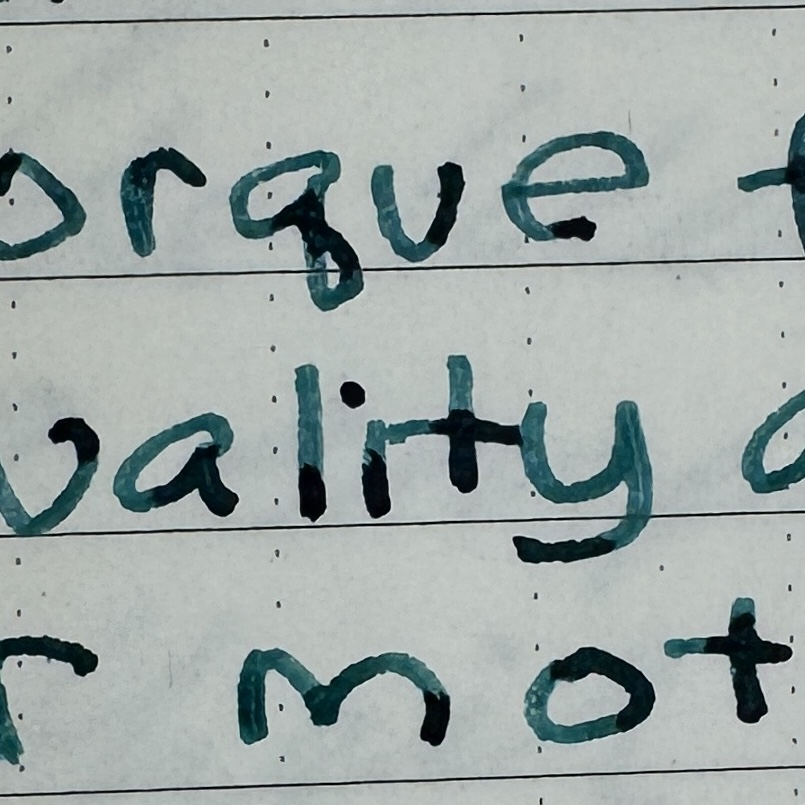 orque t
vality a
r mot